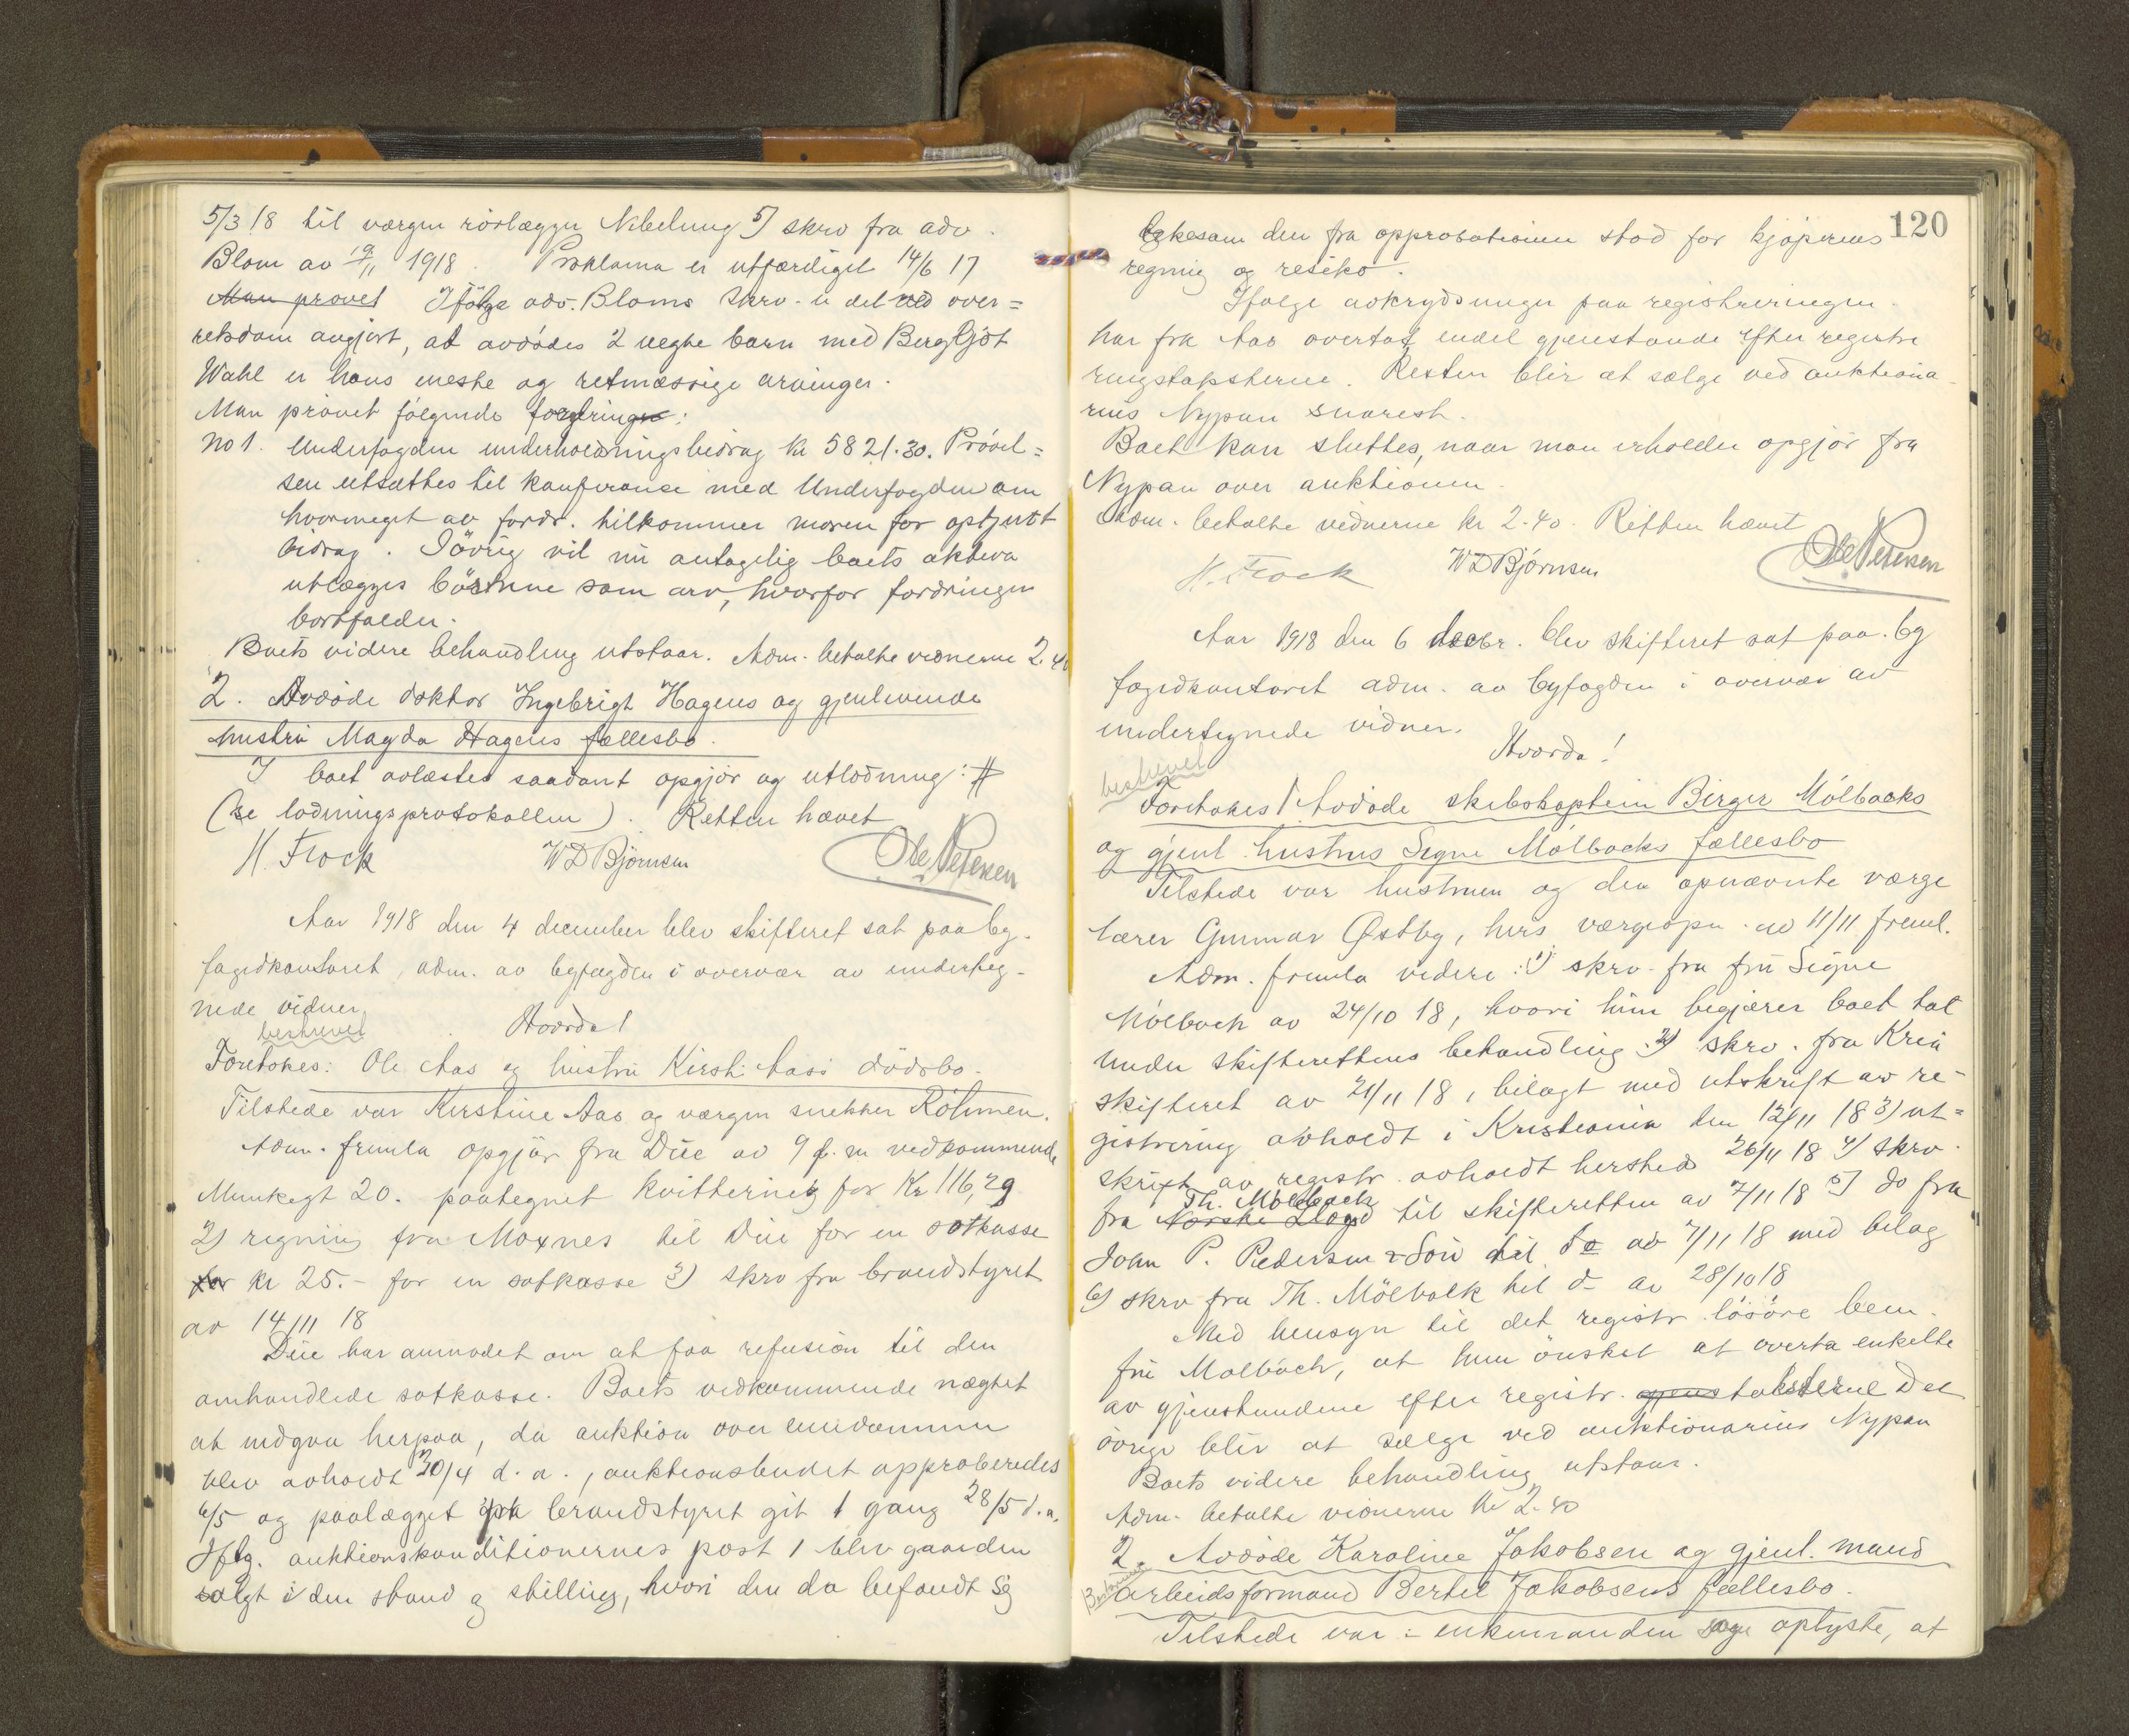 5/3 18 til værgen rörlægger Nibelung 5) skrv fra adv.
Blom av 19/11 1918. Proklama er utfærdiget 14/6 17
Man prøvet Ifölge adv. Bloms skrv. er det ved over=
retsdom avgjort, at avdödes 2 uegte barn med Bergljot
Wahl er hans eneste og retmæssige arvinger.
Man prövet følgende fordringer:
No 1. Underfogden underholdningsbidrag kr 5821.30. Prövel=
sen utsættes til konferanse med Underfogden om
hvormeget av fordr. tilkommer moren for optjent
bidrag. Iövrig vil nu antagelig boets aktiva
utlægges börnene som arv, hvorfor fordringen
bortfalder.
Boets videre behandling utstaar. Adm. betalte vidnerne 2.40
2. Avdöde doktor Ingebrigt Hagens og gjenlevende
hustru Magda Hagens fællesbo.
I boet avlæstes saadant opgjör og utlodning: #
(se lodningsprotokollen). Retten hævet
H. Frock WD Björnsen Ole Petersen
Aar 1918 den 4 december blev skifteret sat paa by-
fogdkontoret, adm. av byfogden i overvær av underteg-
nede vidner
beskrevet Hvorda!
Foretokes: Ole Aas og hustru Kirsti Aas's dödsbo.
Tilstede var Kirstine Aas og værgen snekker Röhmen.
Adm. fremla opgjör fra Due av 9 f. m vedkommende
Munkegt 20. paategnet kvittering for Kr 116,29
2) regning fra Moxnes til Due for en sotkasse
for kr 25.- for en sotkasse 3) skrv fra brandstyret
av 14/11 18
Due har anmodet om at faa refusion til den
omhandlede sotkasse. Boets vedkommende nægtet
at indgaa herpaa, da auktion over eiendommen
blev avholdt 30/4 d. a., auktionsbudet approberedes
6/5 og paalægget fra brandstyret git 1 gang 28/5 d. a.
Iflg. auktionskonditionernes post 1 blev gaarden
solgt i den stand og stilling, hvori den da befandt sig
120
likesom den fra approbationen stod for kjöperens
regning og risiko.
Ifølge avkrydsninger paa registreringen
har frk Aas overtat endel gjenstande efter registre
ringstaksterne. Resten blir at sælge ved auktiona-
rius Nypan snarest.
Boet kan sluttes, naar man erholder opgjör fra
Nypan over auktionen.
Adm. betalte vidnerne kr 2.40. Retten hævet
H. Frock WD Björnsen Ole Petersen
Aar 1918 den 6 decbr. blev skifteret sat paa by
fogdkontoret adm. av byfogden i overvær av
undertegnede vidner.
Hvorda!
beskrevet
Foretokes 1. Avdöde skibskaptein Birger Mölbacks
og gjenl. hustrus Signe Mölbacks fællesbo
Tilstede var hustruen og den opnævnte værge
lærer Gunnar Østby, hvis værgeopn. av 11/11 freml.
Adm. fremla videre: 1) skrv. fra fru Signe
Mölbach av 24/10 18, hvori hun begjærer boet tat
under skifterettens behandling. 2) skrv. fra Kr.ia
skifteret av 21/11 18, bilagt med utskrift av re-
gistrering avholdt i Kristiania den 12/11 18 3) ut=
skrift av registr. avholdt hersteds 26/11 18 4) skrv.
Th. Mölbach
fra Norske Lloyd til skifteretten av 7/11 18 5) do fra
John P. Pedersen & Sön til do av 7/11 18 med bilag
6) skrv fra Th. Mölbalk til d- av 28/10 18
Med hensyn til det registr. lösöre bem.
fru Mølbach, at hun önsket at overta enkelte
av gjenstandene efter registr. gjens taksterne Det
övrige blir at sælge ved auktionarius Nypan
Boets videre behandling utstaar.
Adm. betalte vidnerne kr 2.40
2. Avdöde Karoline Jakobsen og gjenl. mand
arbeidsformand Bertel Jakobsens fællesbo.
Tilstede var: enkemanden som oplyste, at